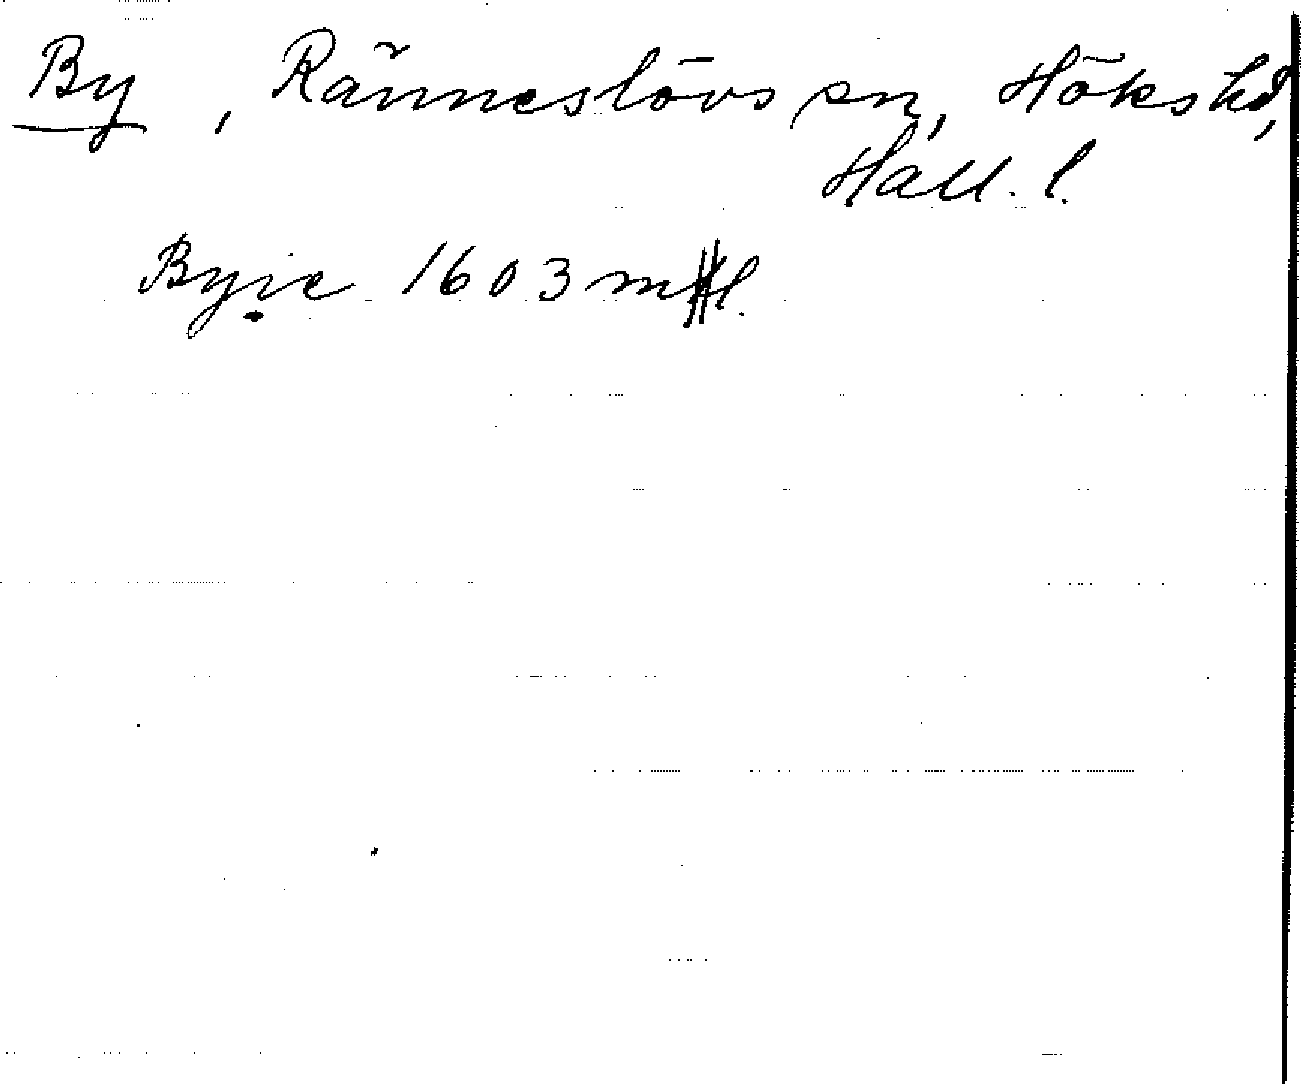 By, Ränneslövs sn, Höks hd,
Hall. l.
Byie 1603 mtl.